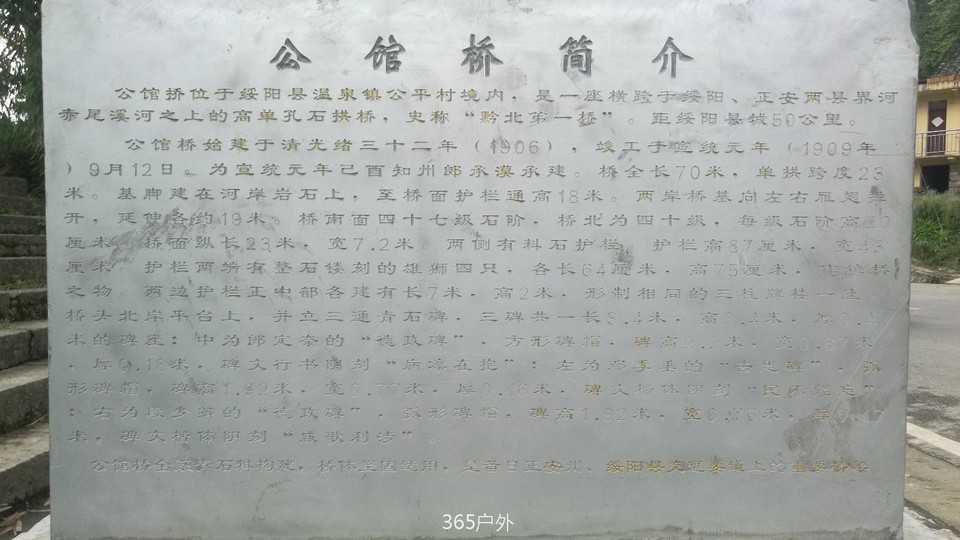 公馆桥简介
公馆桥位于绥阳县温泉镇公平村境内，是一座横跨于绥阳、正安两县界河
赤尾溪河之上的高单孔石拱桥，史称“黔北第一桥”。距绥阳县城50公里。
公馆桥始建于清光绪三十二年（1906），竣工于宣统元年（1909年
）9月12日。为宣统元年己酉知州郎承谟承建。桥全长70米，单拱跨度23
米。基脚建在河岸岩石上，至桥面护栏通高18米。两岸桥基向左右雁翅
开，延伸各约19米。桥南面四十七级石阶，桥北为四十级，每级石阶高20
厘米。桥面纵长23米，宽7.2米。两侧有料石护栏，护栏高87厘米，宽43
厘米。护栏两端有整石镂刻的雄狮四只，各长64厘米，高75厘米，镇桥
之物。两边护栏正中部各建有长7米，高2米，形制相同的三柱牌楼一座。
桥头北岸平台上，并立三通青石碑，三碑共一长8.4米，高0.4米，厚
米的碑座：中为郎定奈的“德政碑”，方形碑帽，碑高2.2米，宽0.87米
，厚0.18米，碑文行书阴刻“痌瘝在抱”：左为邓季垂的“去思碑”，弧
形碑帽，碑高1.92米，宽0.77米，厚0.16米，碑文楷体阴刻
：右为段少卿的“德政碑”，弧形碑帽，碑高1.92米，宽0.76米，厚
米，碑文楷体阴刻“咸歌利涉”。
公馆桥全系青石料构筑，桥体坚固适用，是昔日正安州、绥阳县交通要道上的重要桥梁。
365户外